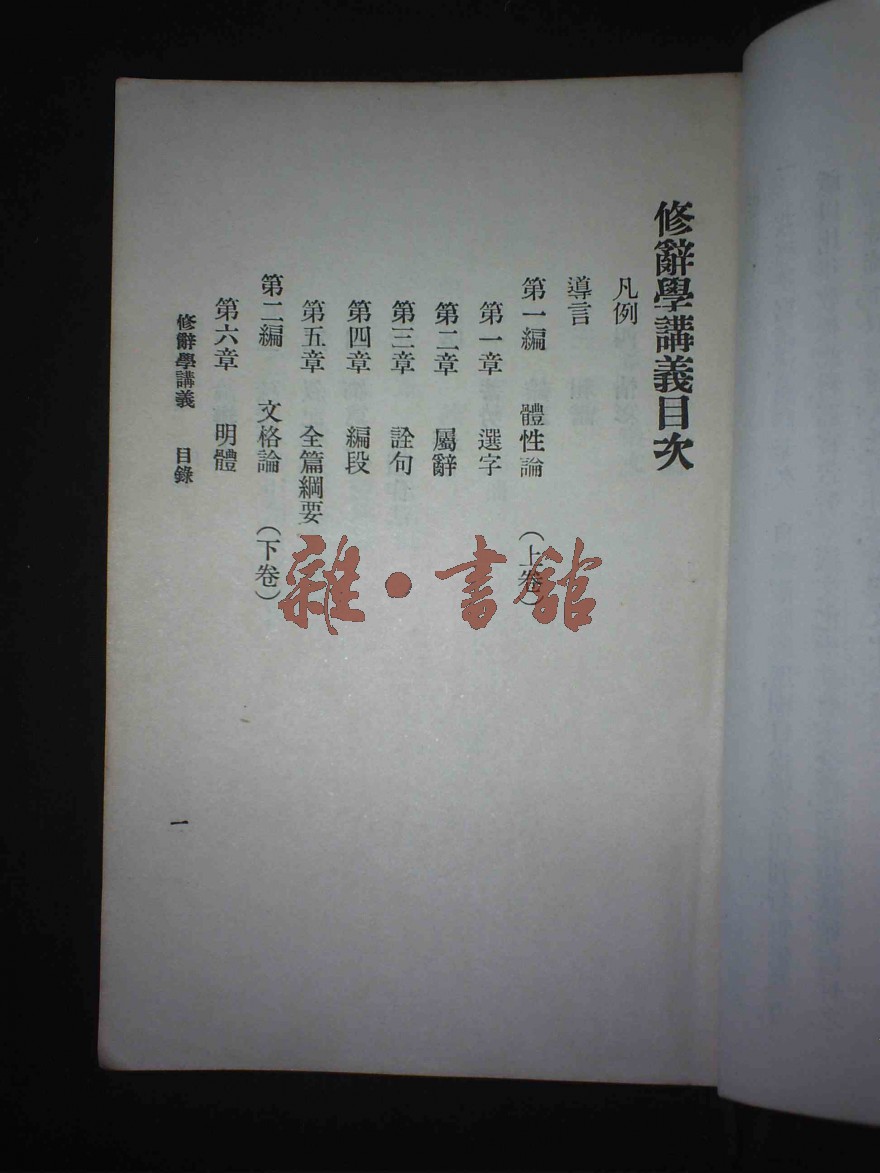 修辭學講義目次
凡例
導言
第一編 體性論 (上卷)
第一章 選字
第二章 屬辭
第三章 詮句
第四章 編段
第五章 全篇綱要
第二編 文格論 (下卷)
第六章 明體
修辭學講義 目錄
一
雜·書館